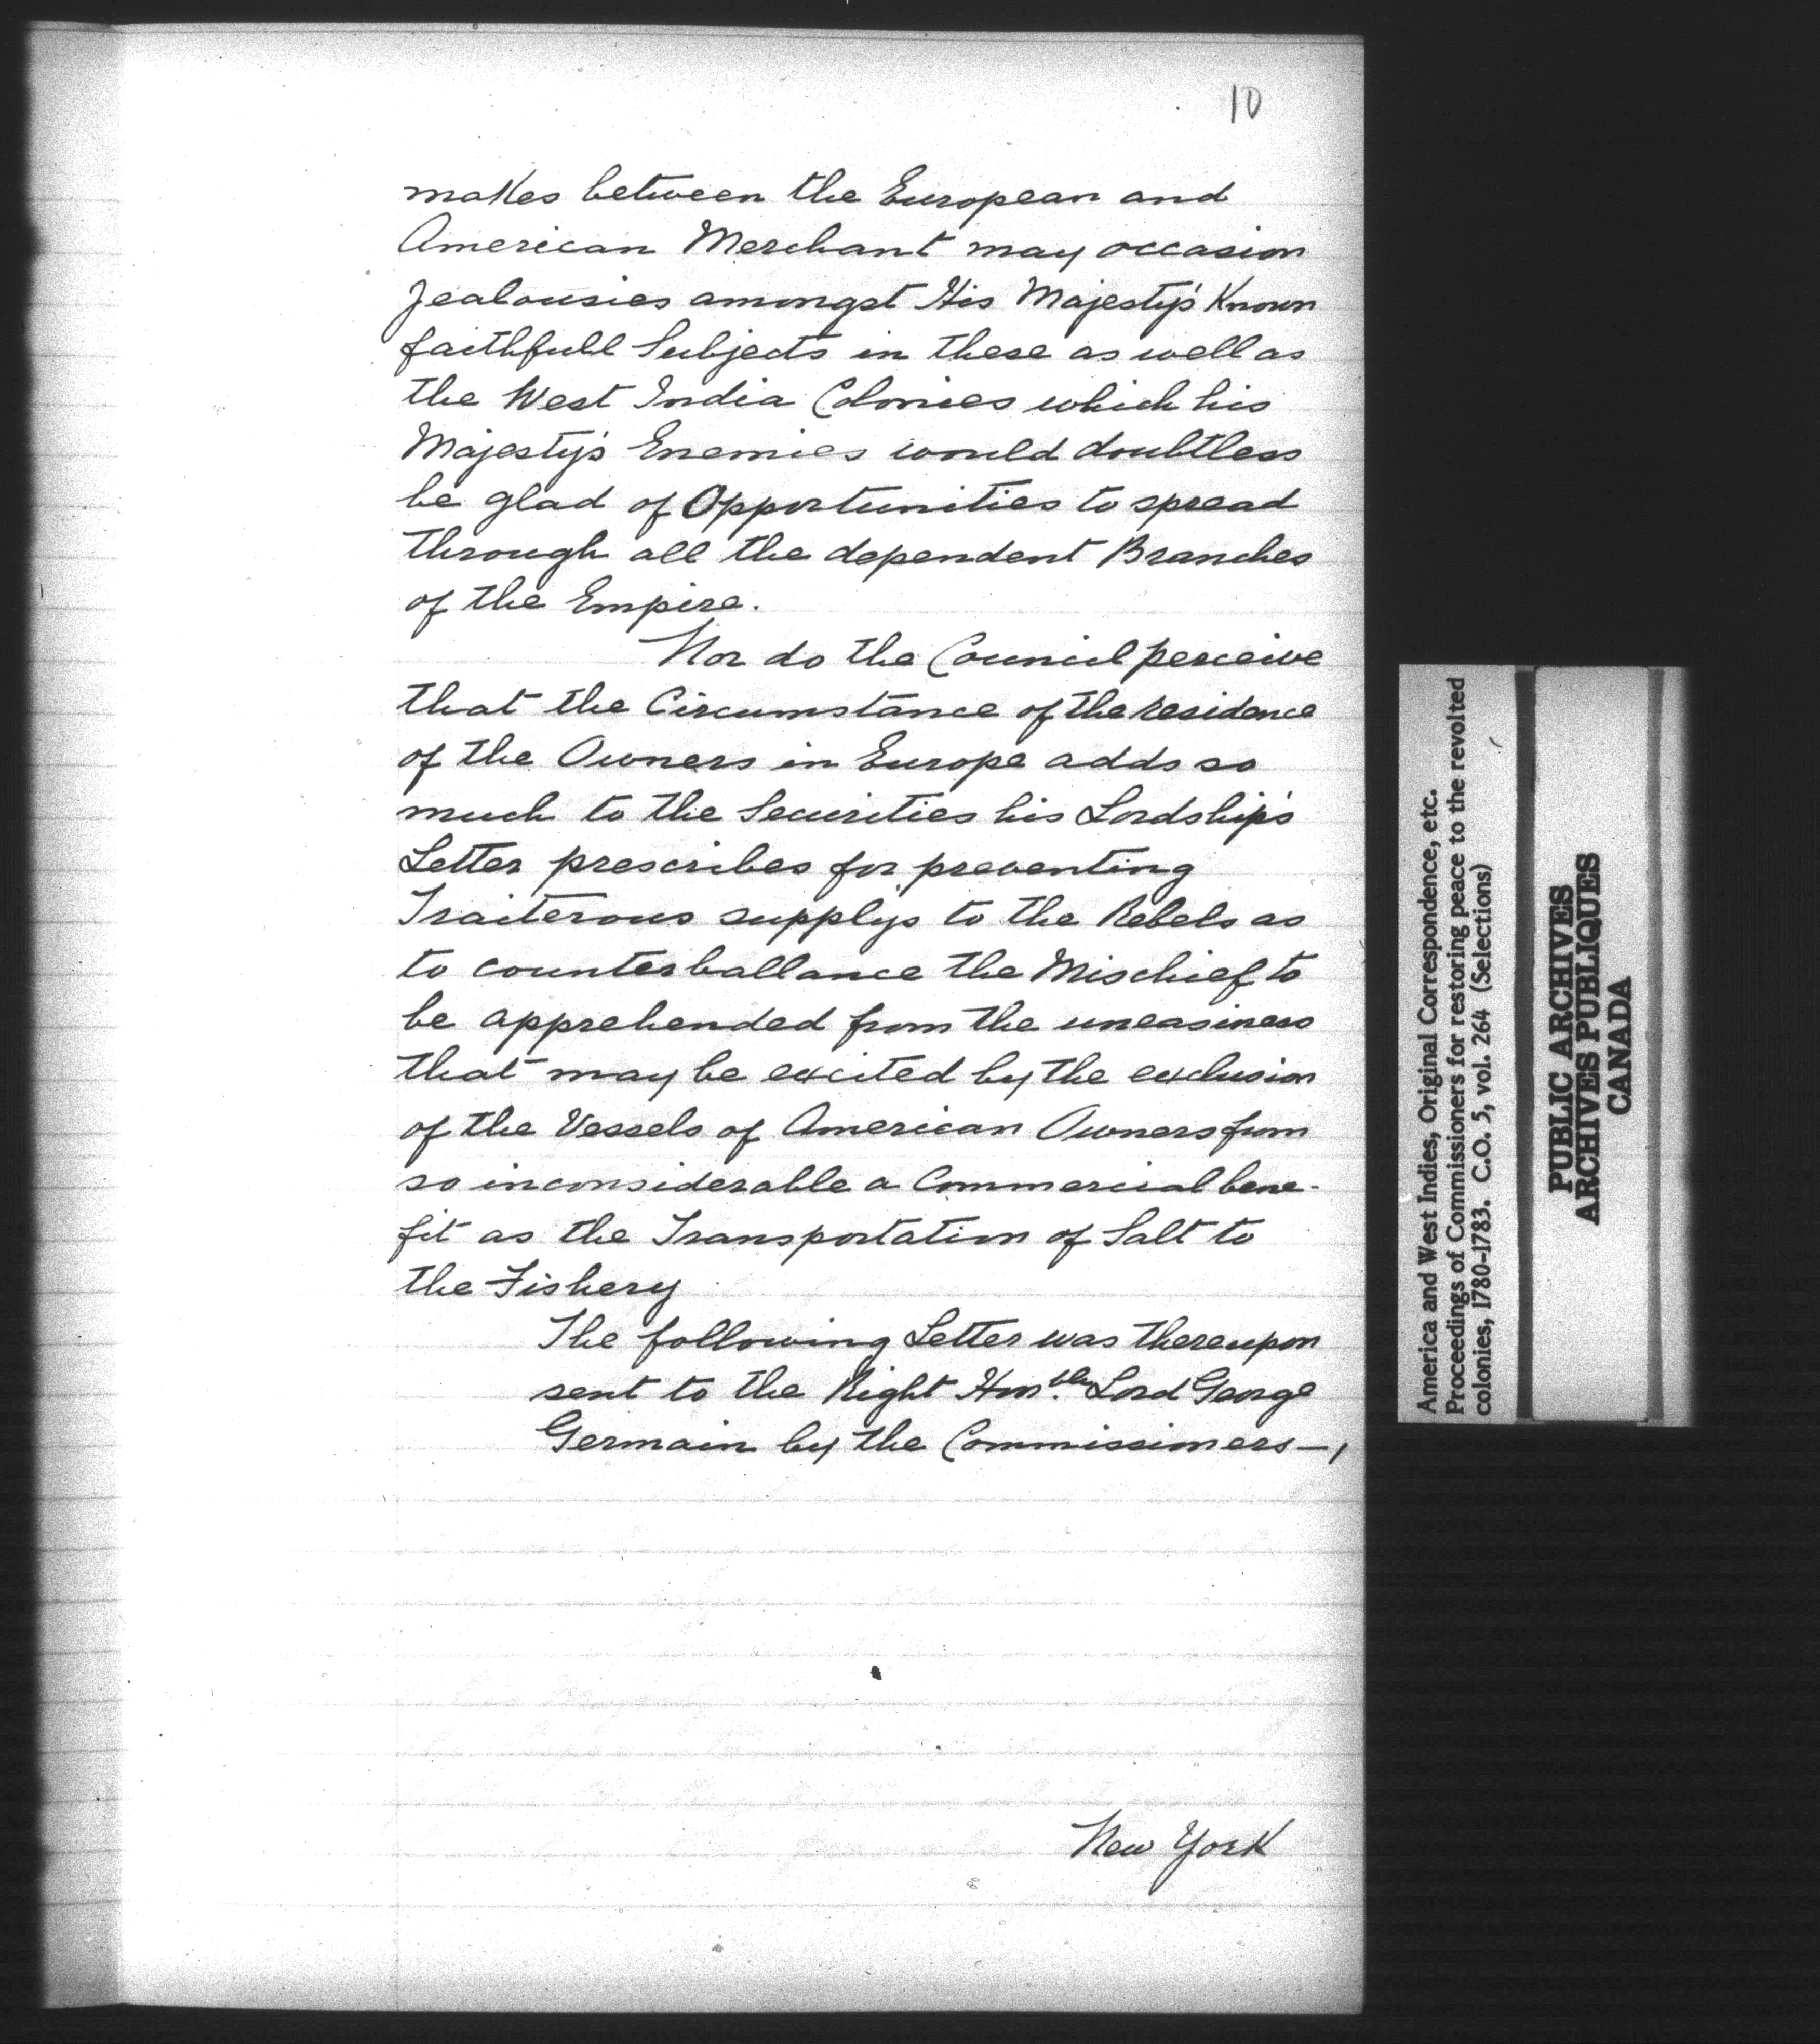 10
makes between the European and
American Merchant may occasion
Jealousies amongst His Majesty's Known
faithfull Subjects in these as well as
the West India Colonies which his
Majesty's Enemies would doubtless
be glad of Opportunities to spread
through all the dependent Branches
of the Empire.
Nor do the Council perceive
that the Circumstance of the residence
of the Owners in Europe adds so
much to the Securities his Lordship's
Letter prescribes for preventing
Traiterous supplys to the Rebels as
to counterballance the Mischief to
be apprehended from the uneasiness
that may be excited by the exclusion
of the Vessels of American Owners from
so inconsiderable a Commercial bene-
fit as the Transportation of Salt to
the Fishery
The following Letter was thereupon
sent to the Right Hon.ble Lord George
Germain by the Commissioners—,
New York
America and West Indies, Original Correspondence, etc.
Proceedings of Commissioners for restoring peace to the revolted
colonies, 1780-1783. C.O. 5, vol. 264 (Selections)
PUBLIC ARCHIVES
ARCHIVES PUBLIQUES
CANADA